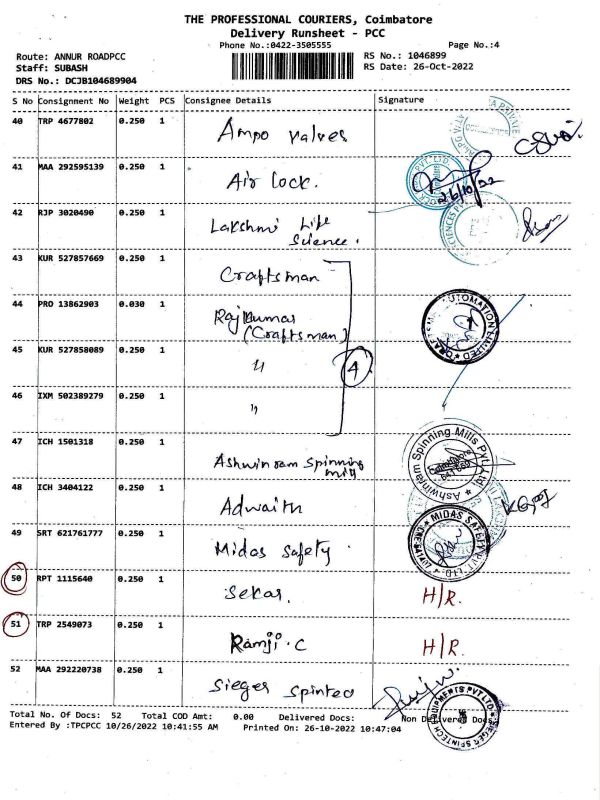 THE PROFESSIONAL COURIERS, Coimbatore
Delivery Runsheet - PCC
Phone No.:0422-3505555 Page No.:4
Route: ANNUR ROADPCC RS No.: 1046899
Staff: SUBASH RS Date: 26-Oct-2022
DRS No.: DCJB104689904
S No Consignment No Weight PCS Consignee Details Signature
40 TRP 4677802 0.250 1 Ampo valves
41 MAA 292595139 0.250 1 Air lock.
26/10/22
42 RJP 3020490 0.250 1 Lakshmi Life
Science.
43 KUR 527857669 0.250 1 Craftsman
44 PRO 13862903 0.030 1 Rajkumar
(Craftsman)
CRAFTSMAN AUTOMATION LIMITED
45 KUR 527858089 0.250 1 "
4
46 IXM 502389279 0.250 1 "
47 ICH 1501318 0.250 1 Ashwinram Spinning
Mill
Ashwinram Spinning Mills Pvt. Ltd
48 ICH 3404122 0.250 1 Adwaith
49 SRT 621761777 0.250 1 Midas Safety
MIDAS SAFETY PVT. LTD.
50 RPT 1115640 0.250 1 Sekar. H/R.
51 TRP 2549073 0.250 1 Ramji.C H/R.
52 MAA 292220738 0.250 1 Sieger Spintec
SIEGER SPINTECH EQUIPMENTS PVT LTD
Total No. Of Docs: 52 Total COD Amt: 0.00 Delivered Docs: Non Delivered Docs
Entered By :TPCPCC 10/26/2022 10:41:55 AM Printed On: 26-10-2022 10:47:04